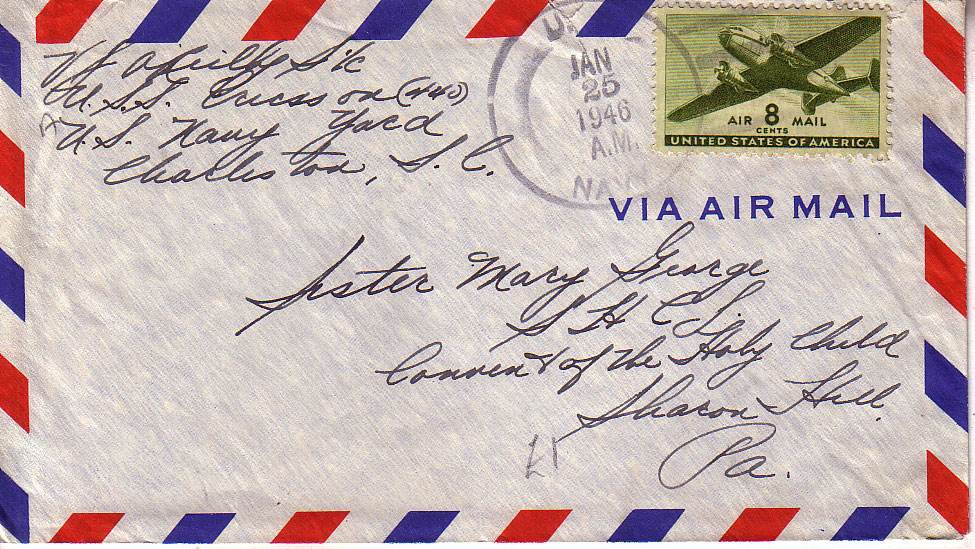 S 1/c
U.S.S. Ericsson (440)
U.S. Navy Yard
Charleston, S.C.
U.S.
JAN
25
1946
A.M.
NAVY
AIR 8 MAIL
CENTS
UNITED STATES OF AMERICA
VIA AIR MAIL
Sister Mary George
S H C J.
Convent of the Holy Child
Sharon Hill
Pa.